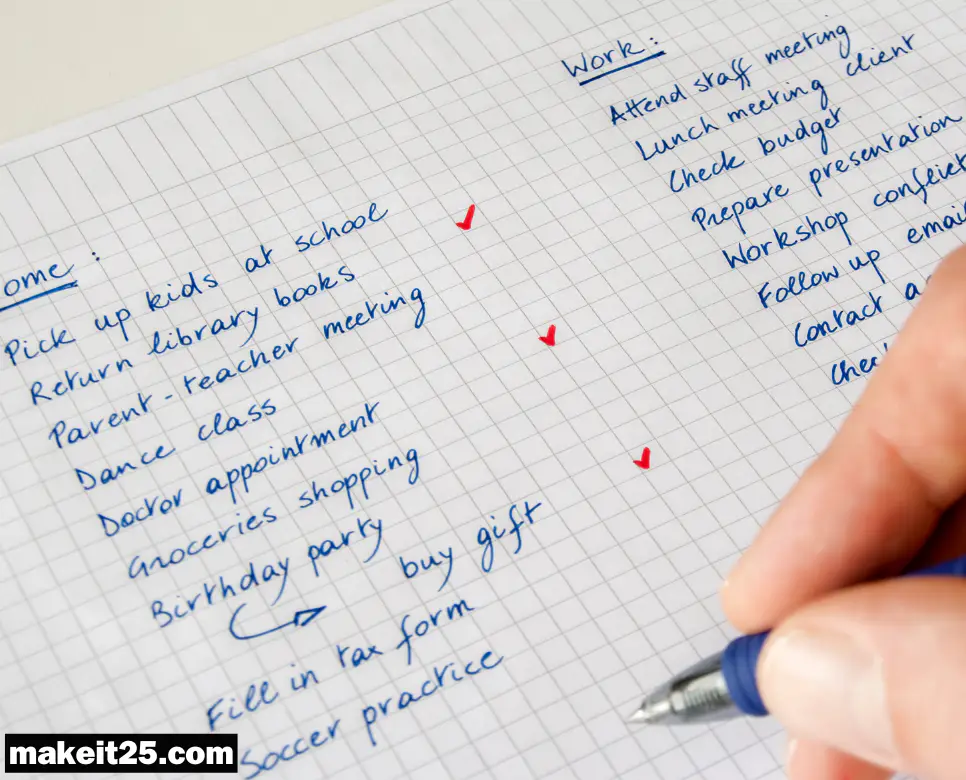 ome :
Pick up kids at school
Return library books
Parent-teacher meeting
Dance class
Doctor appointment
Groceries shopping
Birthday party
buy gift
Fill in tax form
Soccer practice
Work :
Attend staff meeting
Lunch meeting client
Check budget
Prepare presentation
Workshop
Follow up
Contact
makeit25.com